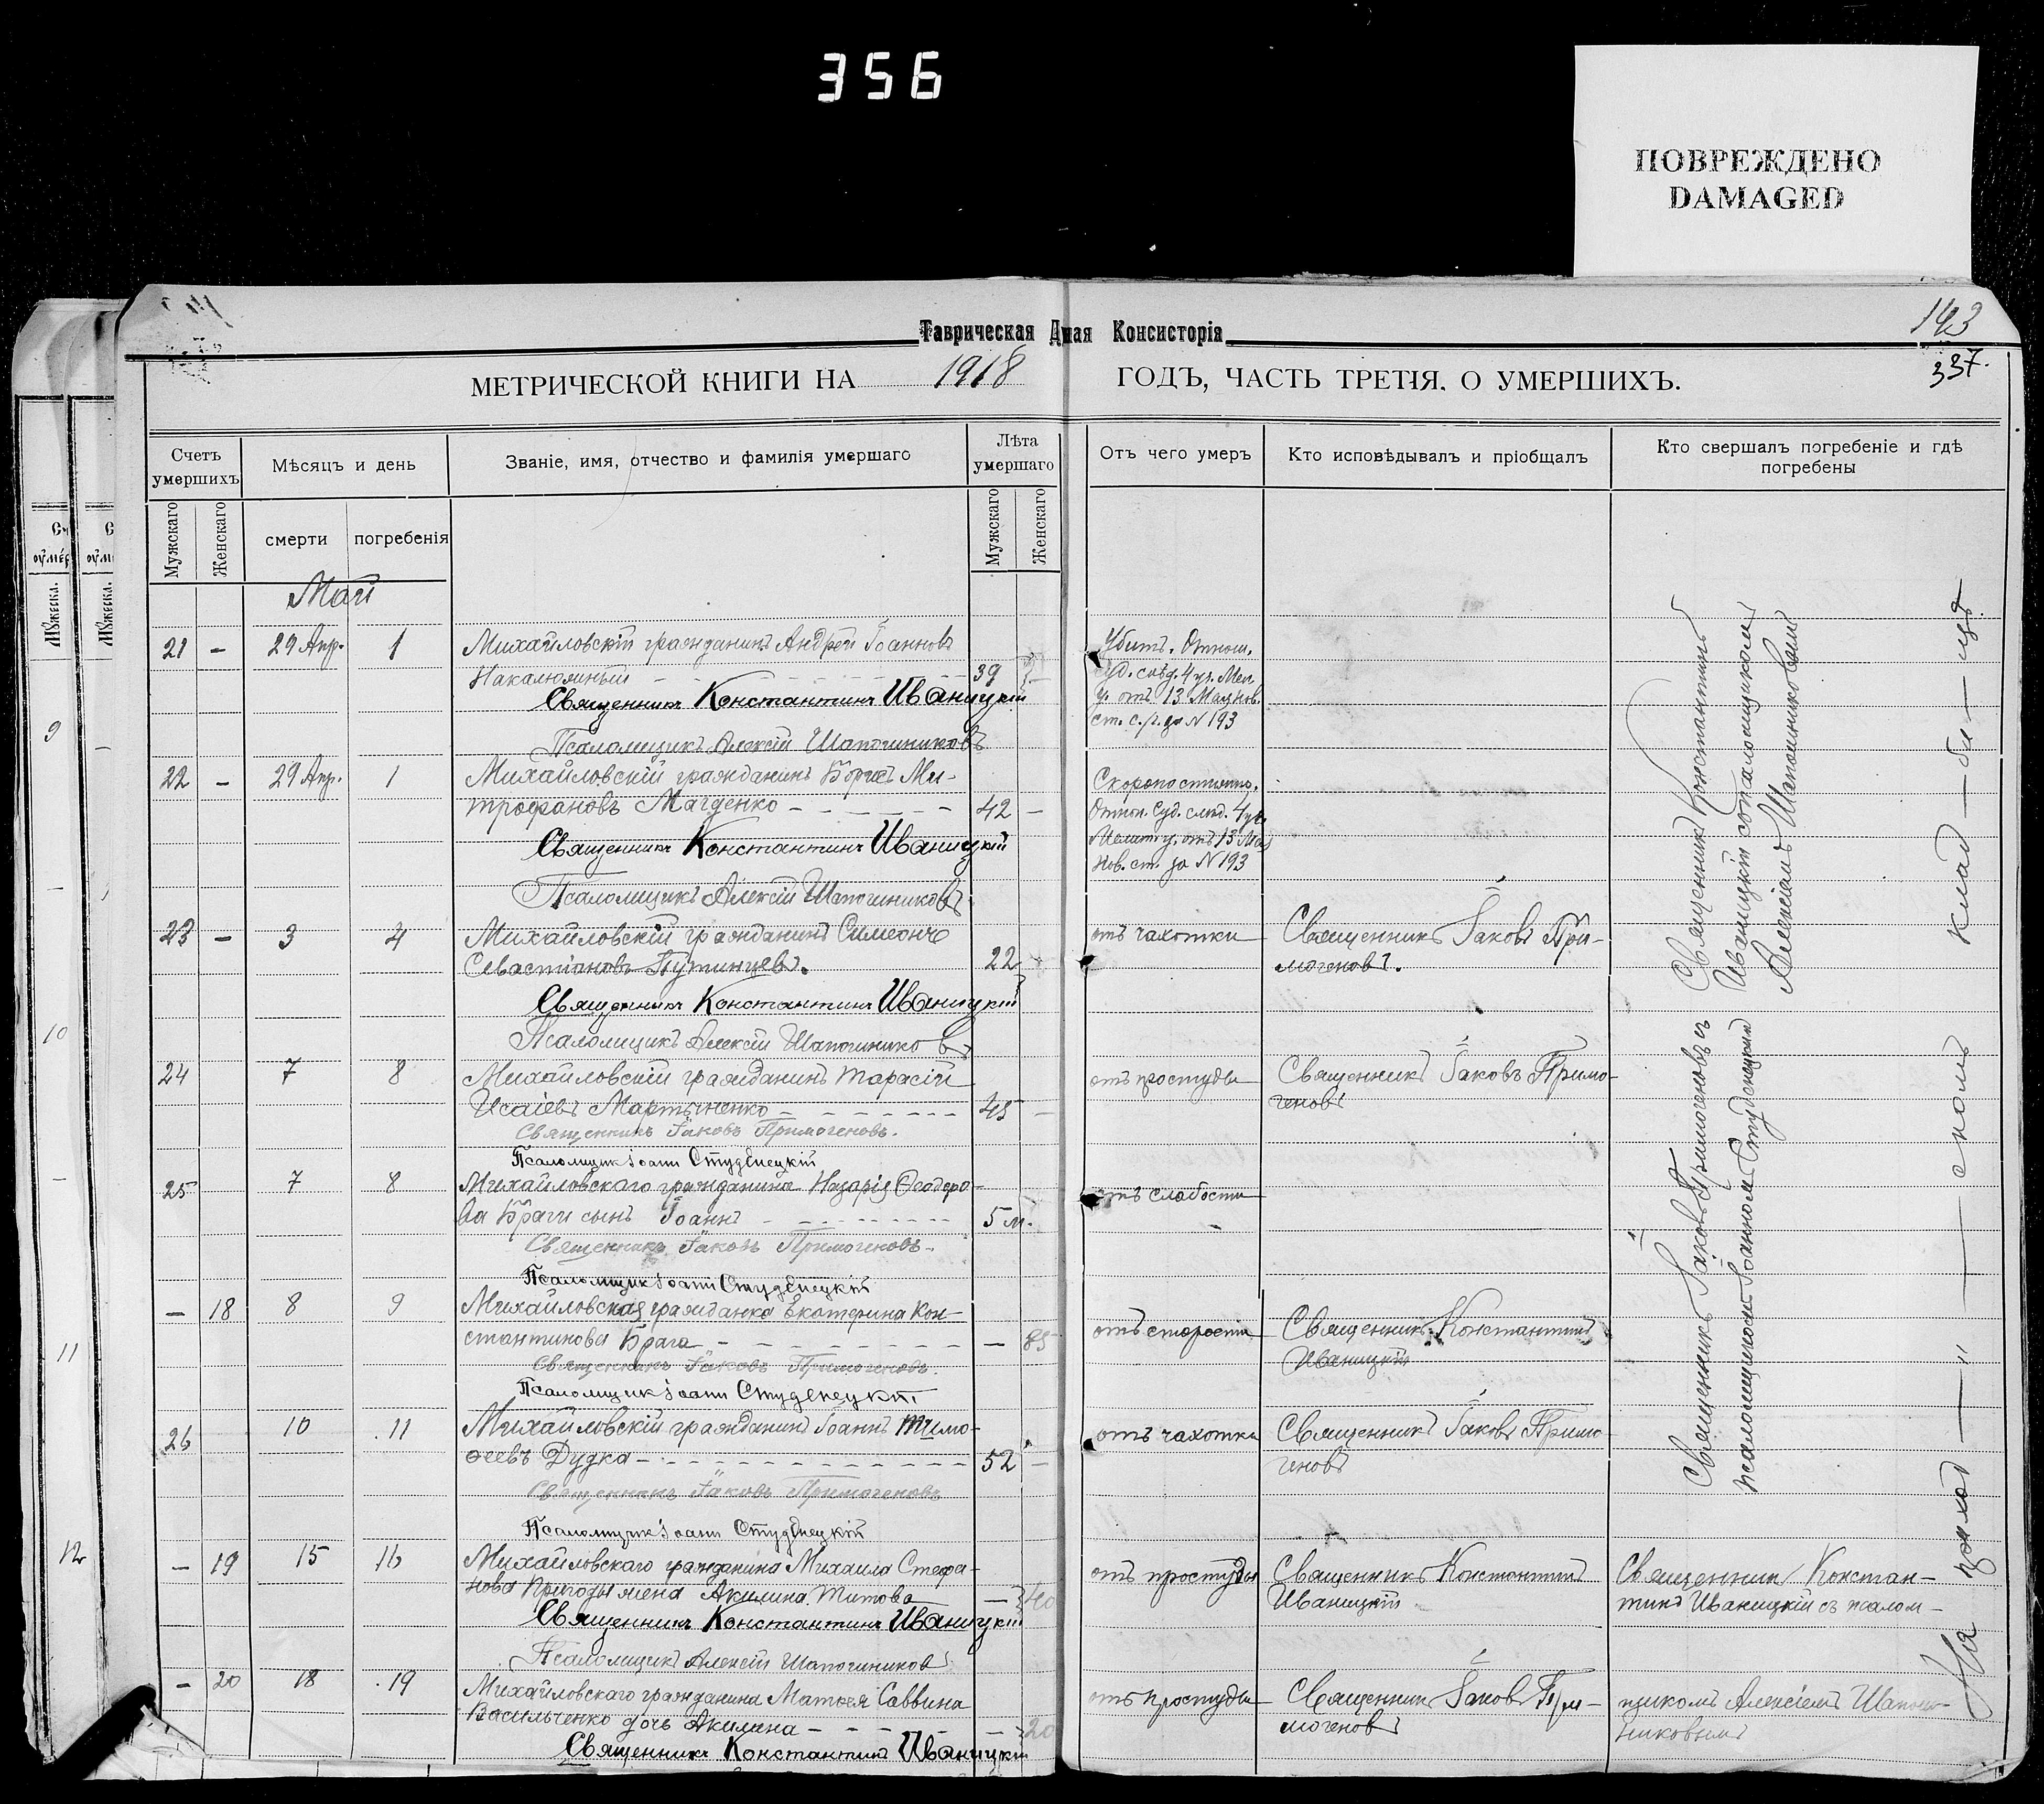 356
ПОВРЕЖДЕНО
DAMAGED
Таврическая Дная Консисторія
143
337.
МЕТРИЧЕСКОЙ КНИГИ НА 1918 ГОДЪ, ЧАСТЬ ТРЕТІЯ. О УМЕРШИХЪ.
Счетъ умершихъ
Мѣсяцъ и день
Званіе, имя, отчество и фамилія умершаго
Лѣта умершаго
Отъ чего умеръ
Кто исповѣдывалъ и пріобщалъ
Кто свершалъ погребеніе и гдѣ погребены
Мужскаго
Женскаго
смерти
погребенія
Мужскаго
Женскаго
Май
21 - 29 Апр. 1 Михайловскій гражданинъ Андрей Іоанновъ
39
Священникъ Константинъ Иваницкій
Псаломщикъ Алексій Шапошниковъ
Убитъ. Отнош.
суд. слѣд. 4 уч. Мел.
у. отъ 13 Мая нов.
ст. с.г. за № 193
22 - 29 Апр. 1 Михайловскій гражданинъ Борисъ Ми-
трофановъ Магденко - 42 -
Священникъ Константинъ Иваницкій
Псаломщикъ Алексій Шапошниковъ
Скоропостижно.
Отнош. Суд. слѣд. 4 уч.
Мелит. у. отъ 13 Мая
нов. ст. за № 193
23 - 3 4 Михайловскій гражданинъ Симеонъ
Севастіановъ Путинцевъ. 22
Священникъ Константинъ Иваницкій
Псаломщикъ Алексій Шапошниковъ
отъ чахотки
Священникъ Іаковъ При-
могеновъ.
24 7 8 Михайловскій гражданинъ Тарасій
Исаіевъ Мартыненко - 45 -
Священникъ Іаковъ Примогеновъ.
Псаломщик Іоанн Студенецкій
отъ простуды
Священникъ Іаковъ Примо-
геновъ
25 7 8 Михайловскаго гражданина Назарія Ѳеодоро-
ва Браги сынъ Іоаннъ - 5 м.
Священникъ Іаковъ Примогеновъ.
Псаломщик Іоанн Студенецкій
отъ слабости
- 18 8 9 Михайловская гражданка Екатерина Кон-
стантинова Брага - - 85
Священникъ Іаковъ Примогеновъ.
Псаломщик Іоанн Студенецкій
отъ старости
Священникъ Константинъ
Иваницкій
26 10 11 Михайловскій гражданинъ Іоаннъ Тимо-
ѳеевъ Дудка - 52 -
Священникъ Іаковъ Примогеновъ
Псаломщик Іоанн Студенецкій
отъ чахотки
Священникъ Іаковъ Примо
геновъ
- 19 15 16 Михайловскаго гражданина Михаила Стефа-
нова Пригоды жена Акилина Титова - 40
Священникъ Константинъ Иваницкій
Псаломщикъ Алексій Шапошниковъ
отъ простуды
Священникъ Константинъ
Иваницкій
Священникъ Констан-
тинъ Иваницкій съ псалом-
- 20 18 19 Михайловскаго гражданина Матѳея Саввина
Васильченко дочь Акилина - - 20
Священникъ Константинъ Иваницкій
отъ простуды
Священникъ Іаковъ При-
могеновъ
щикомъ Алексіемъ Шапош-
никовымъ
Священникъ Константинъ
Иваницкій съ псаломщикомъ
Алексіемъ Шапошниковымъ
Священникъ Іаковъ Примогеновъ съ
псаломщикомъ Іоанномъ Студенецкимъ
На приход - скомъ клад - би - щѣ
9
10
11
12